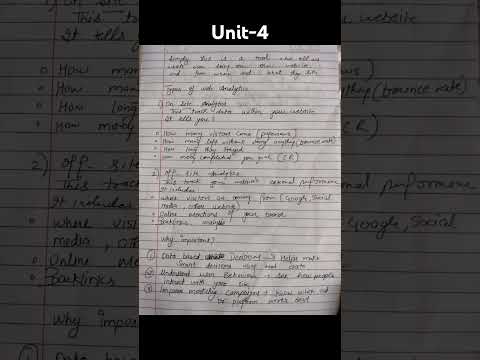 Unit-4
Simply this is a tool
website
and from where and what they
Types of web Analytics
1) On site Analytics
This track data within your website
It tells you?
How many visitors come (pageviews)
How many left without doing anything (bounce rate)
How long they stayed
How many completed your goal (CR)
2) Off site Analytics
This track your website's external performance
It includes
where visitors are coming from (Google, Social
media, other websites)
Online mentions of your brand
Backlinks
Why important?
1) Data based Decisions → Helps make
smart decisions using real data
2) Understand user Behaviour → See how people
interact with your site
3) Improve marketing campaigns → Know which ad
or platform works best